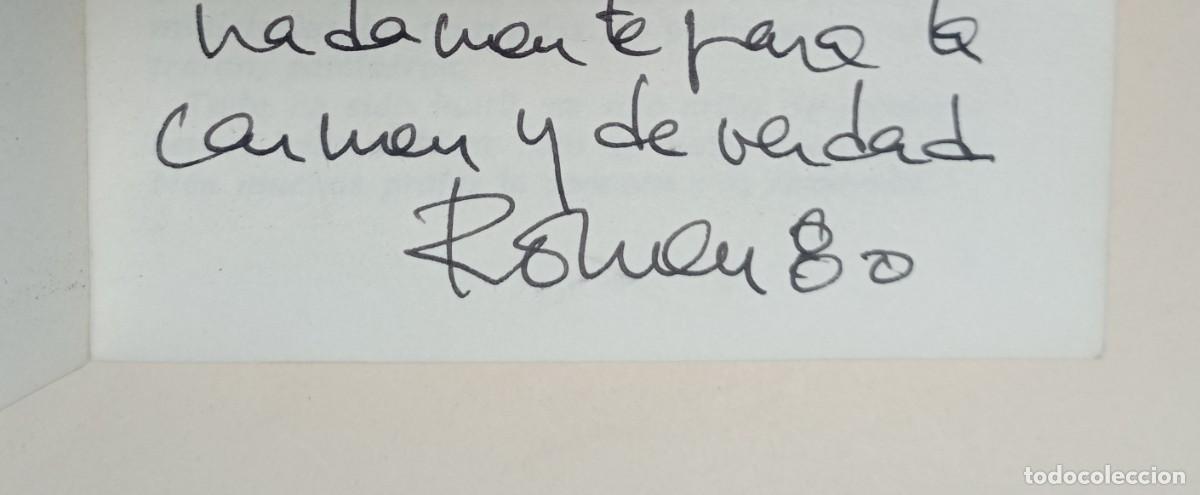 nadamente para la
Carmen y de verdad
Roman 80
todocoleccion